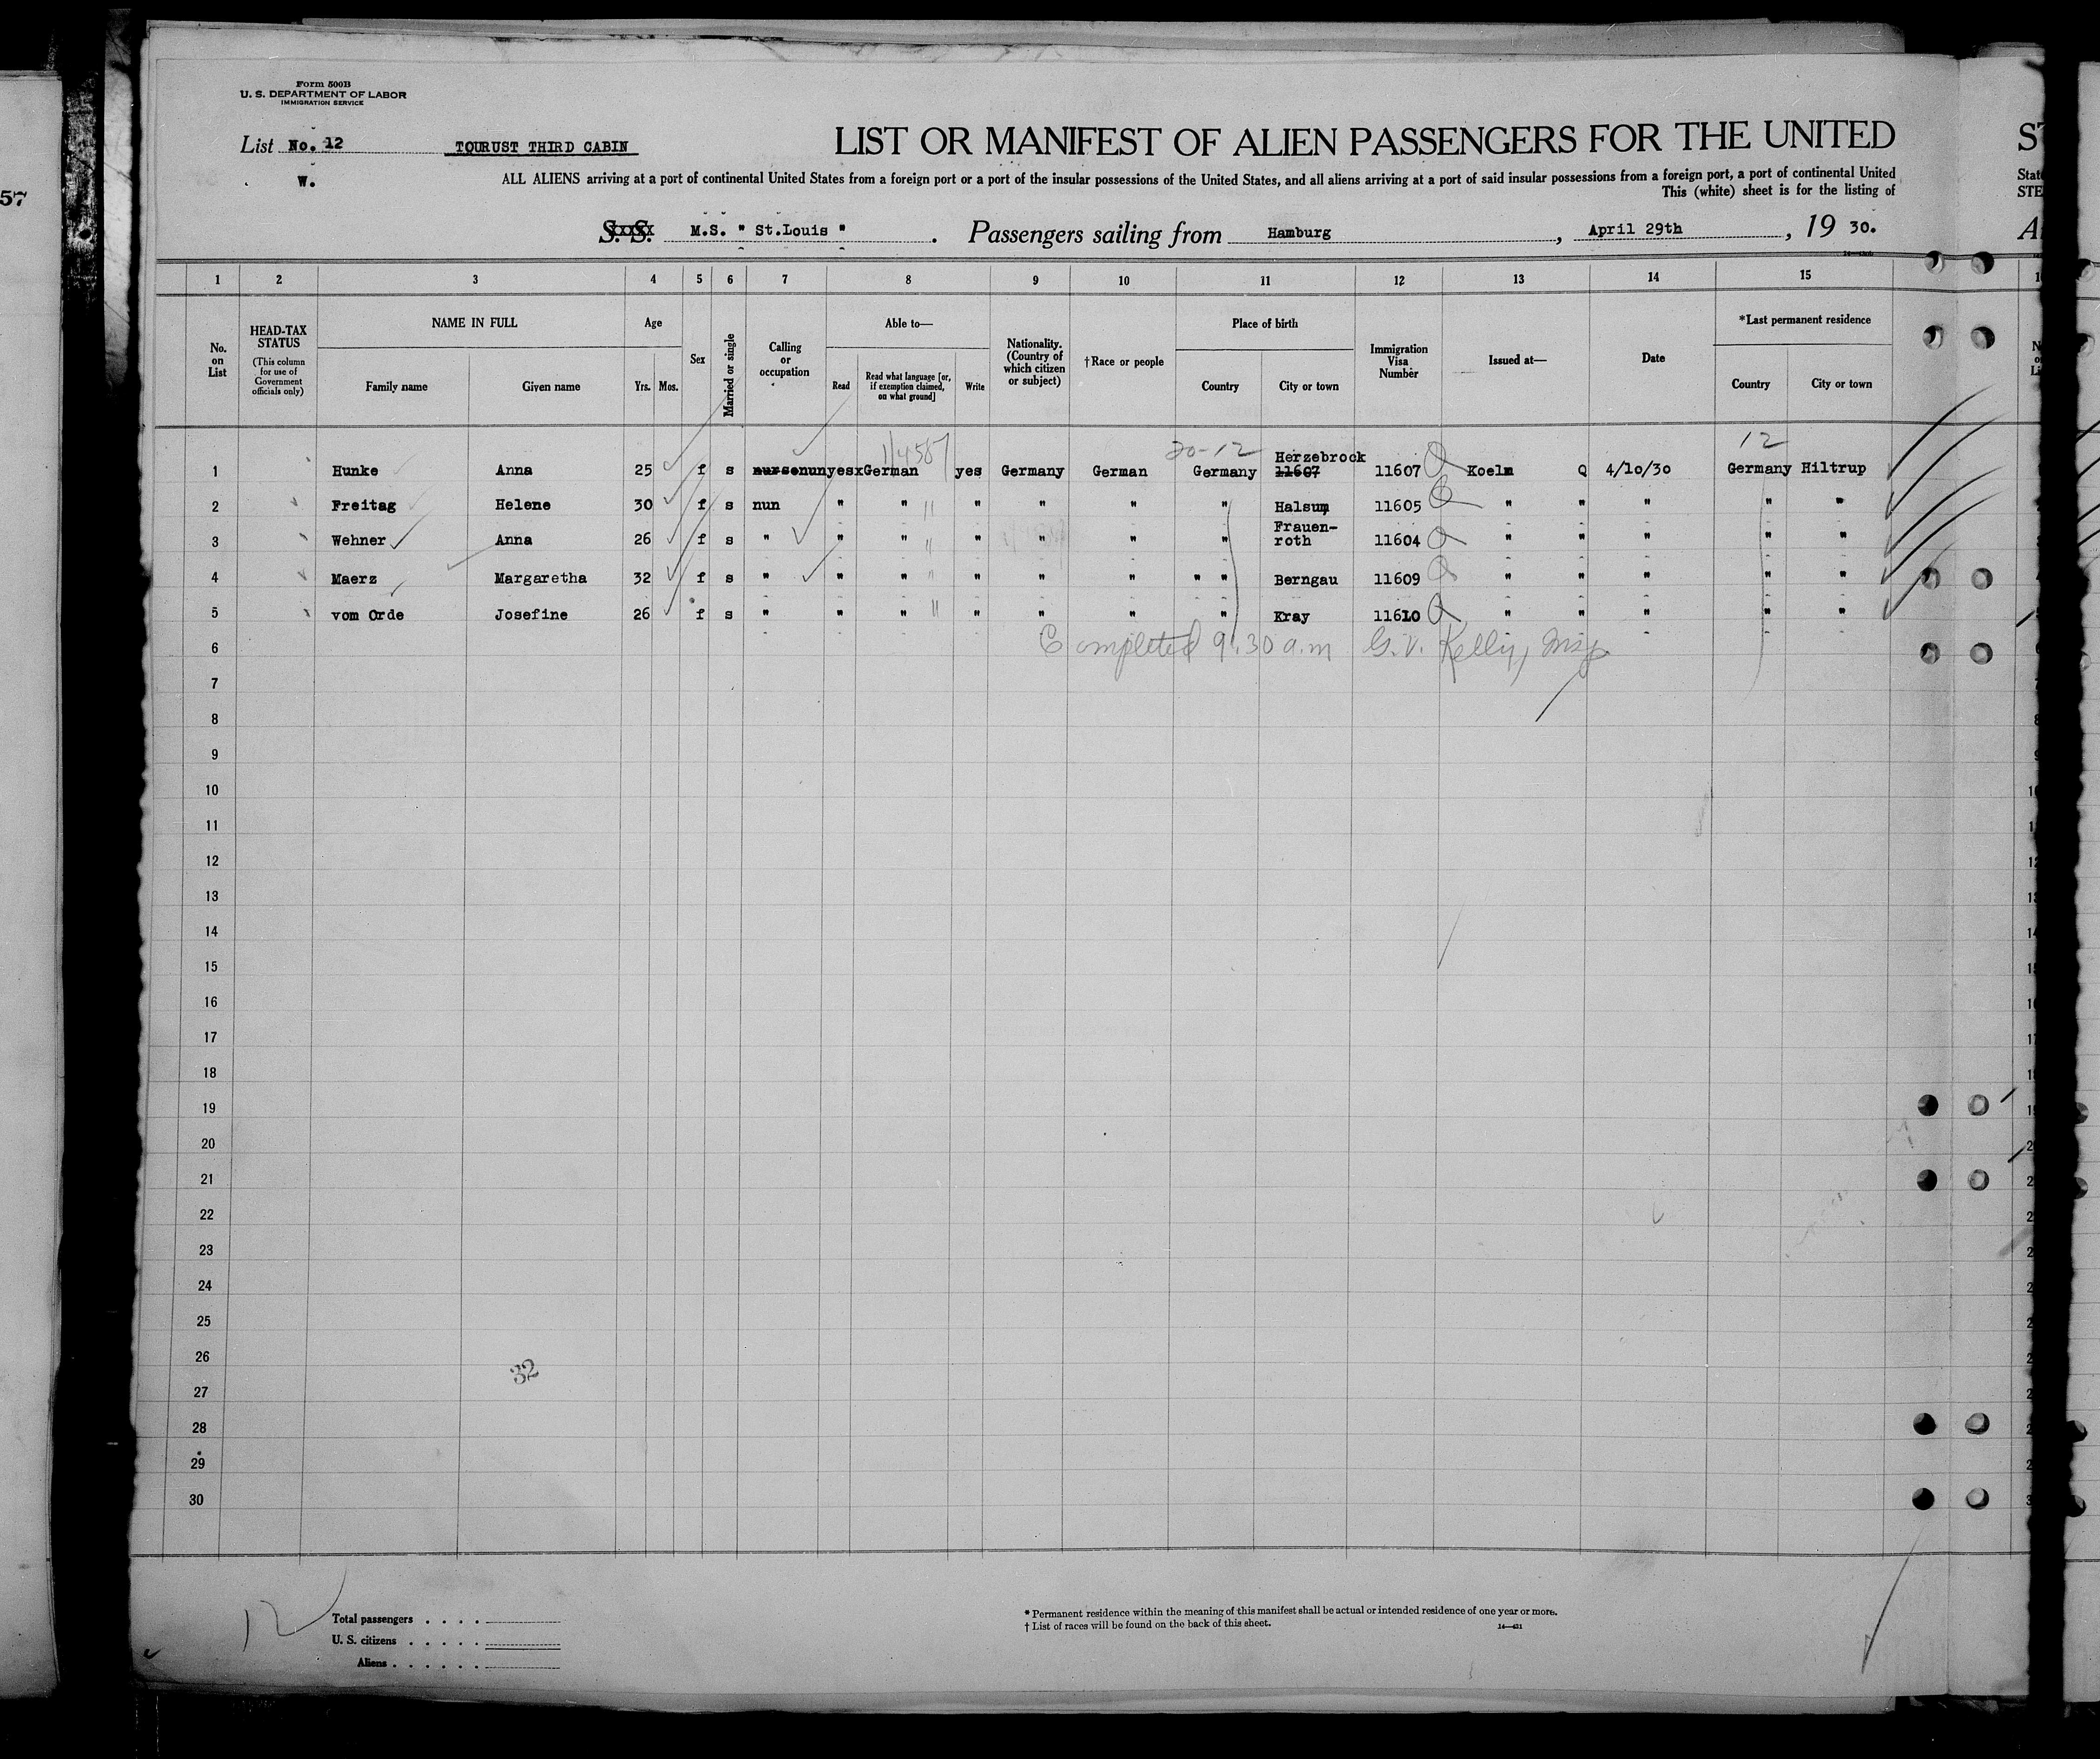 57
Form 500B
U. S. DEPARTMENT OF LABOR
IMMIGRATION SERVICE
List No. 12 TOURUST THIRD CABIN
W.
LIST OR MANIFEST OF ALIEN PASSENGERS FOR THE UNITED
ALL ALIENS arriving at a port of continental United States from a foreign port or a port of the insular possessions of the United States, and all aliens arriving at a port of said insular possessions from a foreign port, a port of continental United
This (white) sheet is for the listing of
S. S. M.S. " St.Louis " . Passengers sailing from Hamburg , April 29th , 19 30.
1 2 3 4 5 6 7 8 9 10 11 12 13 14 15
No. on List HEAD-TAX STATUS (This column for use of Government officials only) NAME IN FULL Family name Given name Age Yrs. Mos. Sex Married or single Calling or occupation Able to— Read Read what language [or, if exemption claimed, on what ground] Write Nationality. (Country of which citizen or subject) †Race or people Place of birth Country City or town Immigration Visa Number Issued at— Date *Last permanent residence Country City or town
114587 20-12 12
1 Hunke Anna 25 f s nurse nun yesx German yes Germany German Germany Herzebrock 11607 11607 Koeln Q 4/10/30 Germany Hiltrup
2 Freitag Helene 30 f s nun " " " " " " Halsum 11605 " " " " "
3 Wehner Anna 26 f s " " " " " " " Frauen-roth 11604 " " " " "
4 Maerz Margaretha 32 f s " " " " " " " " Berngau 11609 " " " " "
5 vom Orde Josefine 26 f s " " " " " " " Kray 11610 " " " " "
6 Completed 9:30 a.m G.V. Kelly, Insp
7
8
9
10
11
12
13
14
15
16
17
18
19
20
21
22
23
24
25
26
27
28
29
30
32
12
Total passengers . . . .
U. S. citizens . . . . .
Aliens . . . . . .
* Permanent residence within the meaning of this manifest shall be actual or intended residence of one year or more.
† List of races will be found on the back of this sheet. 14—421